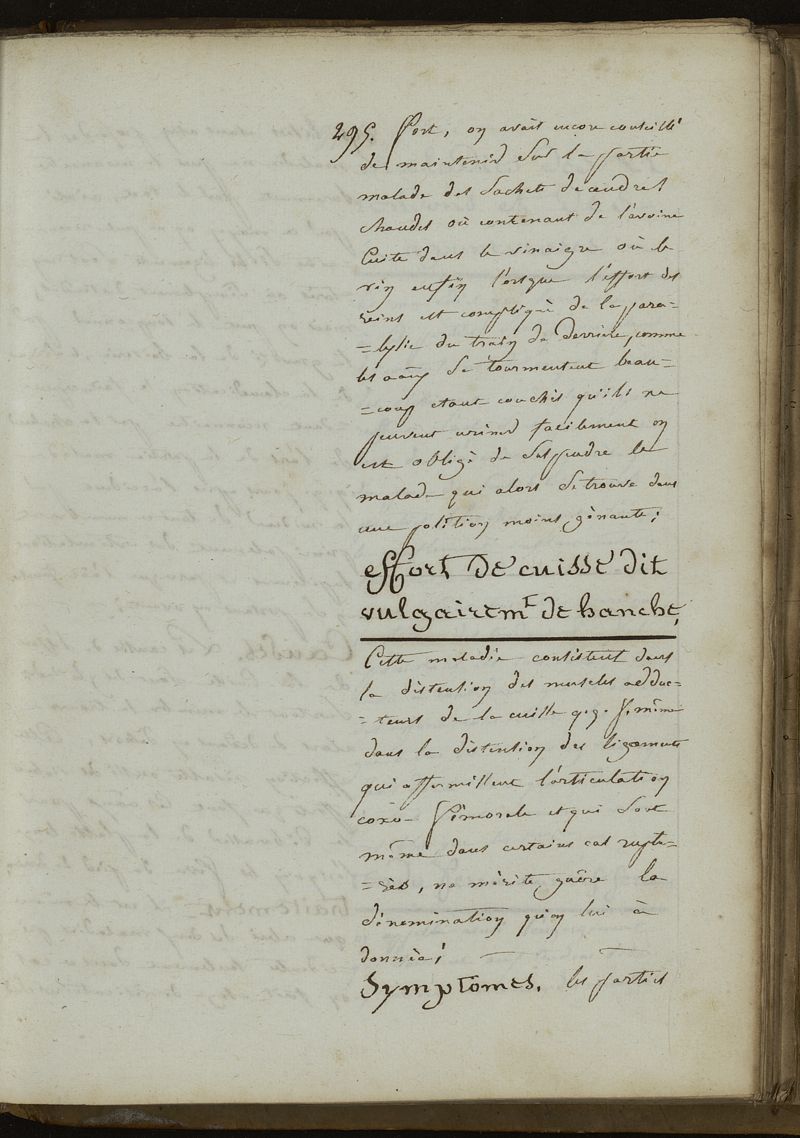 295. fort, on avait encore conseillé
de maintenir sur la partie
malade des sachets de cendres
chaudes où contenant de l'avoine
Cuite dans le vinaigre où le
vin enfin l'orsque l'effort des
reins est compliqué de la para=
=lysie du train de derrière, comme
les se tourmentent beau=
=coup etant couchés qu'ils ne
peuvent uriner facilement on
est obligé de suspendre le
malade qui alors se trouve dans
une position moins gênante;
effort de cuisse dit
vulgairemt de hanche,
Cette maladie consistent dans
la distention des muscles adduc=
=teurs de la cuisse q.q. f. même
dans la distention des ligaments
qui affermissent l'articulation
coxo-fémorale et qui sont
même dans certains cas ruptu=
=rés, ne mérite guère la
dénomination qu'on lui à
donnée;
Symptômes. les parties